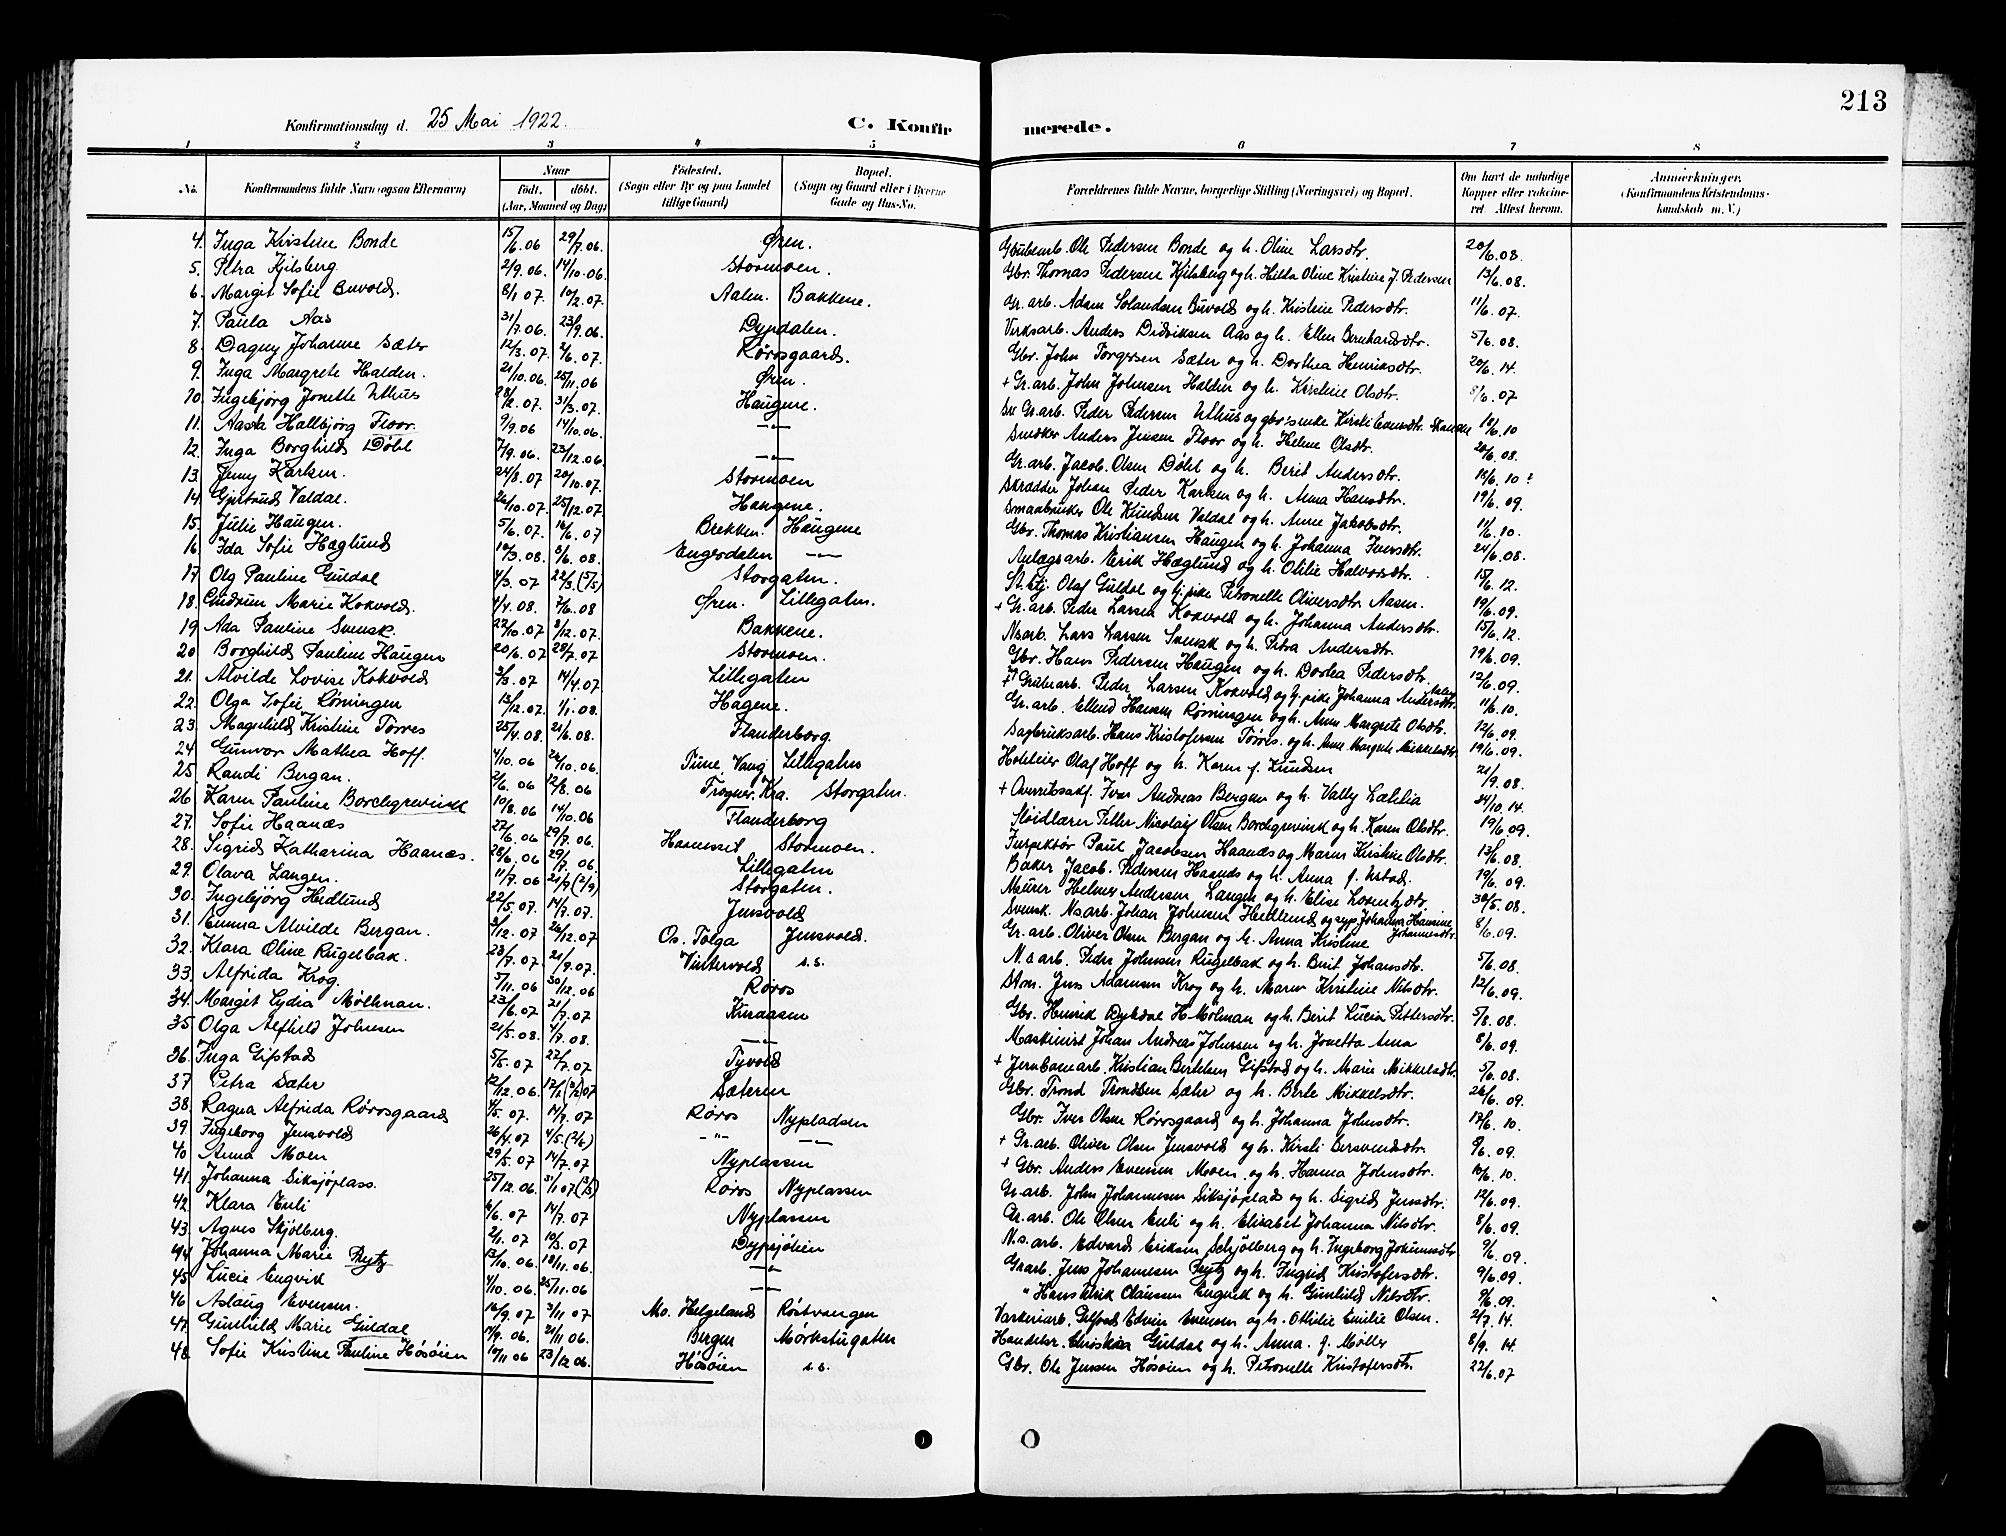 213
Konfirmationsdag d. 25 Mai 1922. C. Konfir merede.
1 2 3 4 5 6 7 8
No. Konfirmandens fulde Navn (ogsaa Efternavn) Naar født. døbt. (Aar, Maaned og Dag) Fødested. (Sogn eller By og paa Landet tillige Gaard) Bopæl. (Sogn og Gaard eller i Byerne Gade og Hus-No. Forældrenes fulde Navne, borgerlige Stilling (Næringsvei) og Bopæl. Om havt de naturlige Kopper eller vaccineret. Attest herom. Anmærkninger. (Konfirmandens Kristendomskundskab m. V.)
4. Inga Kirstine Bonde 15/6.06 29/7.06. Øren. Grubearb. Ole Pedersen Bonde og h. Oline Larsdtr. 20/6.08.
5. Petra Kjelsberg 2/9.06. 14/10.06. Stormoen. Gbr. Thomas Pedersen Kjelsberg og h. Hilda Oline Kristine f. Pedersen 13/6.08.
6. Margit Sofie Buvold. 8/1 07. 10/2.07. Aalen. Bakkene. Gr. arb. Adam Buvold og h. Kristine Pedersdtr. 11/6.07.
7. Paula Aas 31/7.06. 23/9.06. Dypdalen. Verksarb. Anders Didriksen Aas og h. Ellen Bernhardsdtr. 5/6.08.
8. Dagny Johanne Sæter 12/3.07. 2/6.07. Rørosgaard. Gbr. John Torgersen Sæter og h. Dorthea Henriksdtr. 20/6.14.
9. Inga Margrete Halden. 21/10.06. 25/11.06 Øren. + Gr. arb. John Johnsen Halden og h. Kirstine Olsdtr. 8/6.07
10. Ingebjørg Jonette Uthus 28/2.07. 31/3.07. Haugene. Sv Gr. arb. Peder Pedersen Uthus og gbr's enke Kirsti Evensdtr. 10/6.10
11. Aasta Hallbjørg Floor. 9/9.06 14/10.06. —"— Snedker Anders Jensen Floor og h. Helene Olsdtr. 20/6.08.
12. Inga Borghild Døhl 7/9.06. 23/12.06. —"— Gr. arb. Jacob Olsen Døhl og h. Berit Andersdtr. 10/6.10
13. Jenny Karlsen. 24/8.07 20/10.07. Stormoen Skrædder Johan Peder Karlsen og h. Anna Hansdtr. 19/6.09.
14. Gjertrud Valdal. 26/10.07. 25/12.07. Haugene. Smaabruker Ole Knudsen Valdal og h. Anne Jakobsdtr. 11/6.10.
15. Julie Haugen. 5/6.07. 16/6.07 Brekken. Haugene Gbr. Thomas Kristiansen Haugen og h. Johanna Iversdtr. 24/6.08.
16. Ida Sofie Hæglund 10/3.08. 8/6.08. Engerdalen —"— Anlægsarb. Erik Hæglund og h. Otilie Halvorsdtr. 15/6.12.
17. Olg Pauline Guldal 4/3.07 22/3.(5/5) Storgaten. Olaf Guldal og pike Petronelle Oliversdtr. Aasen. 19/6.09.
18. Gudrun Marie Kokvold. 4/4.08. 7/6.08 Øren. Lillegaten. + Gr. arb. Peder Larsen Kokvold og h. Johanna Andersdtr. 15/6.12.
19. Ada Pauline Svensk. 22/10.07 8/12.07. Bakkene. Nsarb. Lars Larsen Svensk og h. Petra Andersdtr. 19/6.09.
20 Borghild Pauline Haugen 20/6.07 28/7.07 Stormoen. Gbr. Hans Pedersen Haugen og h. Dorlea Pedersdtr. 12/6.09.
21. Alvilde Lovise Kokvold 3/3.07 14/4.07. Lillegaten Grubearb. Peder Larsen Kokvold og pike Johanna Andersdtr. 11/6.10.
22. Olga Sofie Rønningen 13/12.07. 1/1.08. Hagene. Gr. arb. Ellend Hansen Rønningen og h. Anne Margrete Olsdtr. 12/6.09.
23. Magnhild Kristine Tørres 25/4.08. 21/6.08. Flanderborg Sagbruksarb. Hans Kristofersen Tørres. og h. Anne Margrete Mikkelsdtr 19/6.09.
24 Gunvor Mathea Hoff. 4/10.06 28/10.06. Tune Vang Lillegaten Hoteleier Olaf Hoff og h. Karen f. Knudsen 21/9.08.
25 Randi Bergan. 2/6.06 12/8.06 Frogner. Kra. Storgaten. + Overrettssakf. Iver Andreas Bergan og h. Vally Lætitia 24/10.14.
26 Karen Pauline Borchgrevink 10/8.06 14/10.06 Flanderborg Sløidlærer Petter Nicolay Olsen Borchgrevink og h. Karen Olsdtr. 19/6.09.
27. Sofie Haanæs 27/6.06 29/7.06. Stormoen. Inspektør Paul Jacobsen Haanæs og Maren Kirstine Olsdtr. 13/6.08.
28. Sigrid Katharina Haanæs. 28/6.06 29/7.06. Lillegaten Baker Jacob Pedersen Haanæs og h. Anna f. 19/6.09.
29. Olava Langen. 11/7.06 21/9(2/9) Storgaten. Murer Helmer Andersen Langen og h. Elise Lorentzdtr. 30/5.08.
30. Ingebjørg Hedlund 22/5.07. 14/7.07. Jensvold Svensk. Nsarb. Johan Johnsen Hedlund og syp. Johanna Hansine Johannesdtr. 8/6.09.
31. Emma Alvilde Bergan. 3/12.07 26/12.07 Os. Tolga Jensvold. Gr. arb. Oliver Olsen Bergan og h. Anna Kristine
32. Klara Oline Rugelbak. 23/7.07. 21/9.07. Vintervold s.s. N. s arb. Peder Johnsen Rugelbak og h. Berit Johansdtr. 5/6.08.
33. Alfrida Krog. 5/11.06 30/12.06 Røros Jens Adamsen Krog og h. Maren Kirstine Nilsdtr. 12/6.09.
34. Margit Lydia Mølhman. 23/6.07 21/7.07 Kuraasen Gbr. Henrik Dykdal H. Mölman og h. Berit Lucia Pettersdtr. 5/8.08.
35 Olga Alfhild Johnsen 21/5.08. 4/7.08. —"— Maskinist Johan Andreas Johnsen og h. Jonetta Anna 8/6.09.
36. Inga Gifstad 5/5.07 27/7.07 Tyvold + Jernbanearb. Kristian Bertelsen Gifstad og h. Marie Mikkelsdtr. 5/6.08.
37 Petra Sæter 12/12.06. Sæteren Gbr. Trond Trondsen Sæter og h. Berte Mikkelsdtr. 26/6.09.
38. Ragna Alfrida Rørosgaard 4/5.07. 14/7.07 Røros Nypladsen Gbr. Iver Olsen Rørosgaard og h. Johanna Johnsdtr. 17/6.10.
39 Ingeborg Jensvold 26/4.07 4/5.(2/6) —"— —"— + Gr. arb. Oliver Olsen Jensvold og h. Kirsti Bersvendsdtr. 9/6.09.
40 Anna Moen 29/5.07 14/7.07 Nyplassen + Gbr. Anders Evensen Moen. og h. Hanna Johnsdtr. 10/6.10.
41. Johanna Siksjøplass. 25/12.06. Røros Nyplassen Gr. arb. John Johannesen Siksjøplads og h. Sigrid Jensdtr. 12/6.09.
42. Klara Euli 6/6.07 14/7.07 Nyplassen Gr. arb. Ole Olsen Euli og h. Elisabet Johanna Nilsdtr. 8/6.09.
43. Agnes Skjølberg. 2/1.07 10/3.07 Dypsjølien N. s. arb. Edvard Eriksen Schjølberg og h. Ingeborg Jokumsdtr 9/6.09.
44. Johanna Marie Prytz 13/10.06. 18/11.06. —"— Gr. arb. Jens Johannesen Prytz og h. Ingrid Kristofersdtr. 9/6.09.
45 Lucie Engvik 4/10.06. 25/11.06 —"— " Hans Erik Olaussen Engvik og h. Gunhild Nilsdtr. 9/6.09.
46 Aslaug Evensen. 16/9.07 3/11.07 Mo. Helgeland Røstvangen Edvin Evensen og h. Othilie Emilie Olsen. 2/7.14.
47. Gunhild Marie Guldal 1/9.06. 21/11.06. Bergen Mørkstugaten Handelsr. Christian Guldal og h. Anna. f. Møller 8/9.14.
48. Sofie Kristine Pauline Høsøien 10/11.06 23/12.06. Høsøien s.s. Gbr. Ole Jensen Høsøien og h. Petronelle Kristofersdtr. 22/6.07